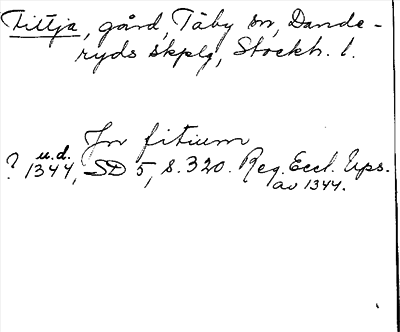 Fittja, gård, Täby sn, Dande-
ryds skplg, Stockh. l.
In fitium
? u.d.
1344, SD 5, s. 320. Reg. Eccl. Ups.
av 1344.